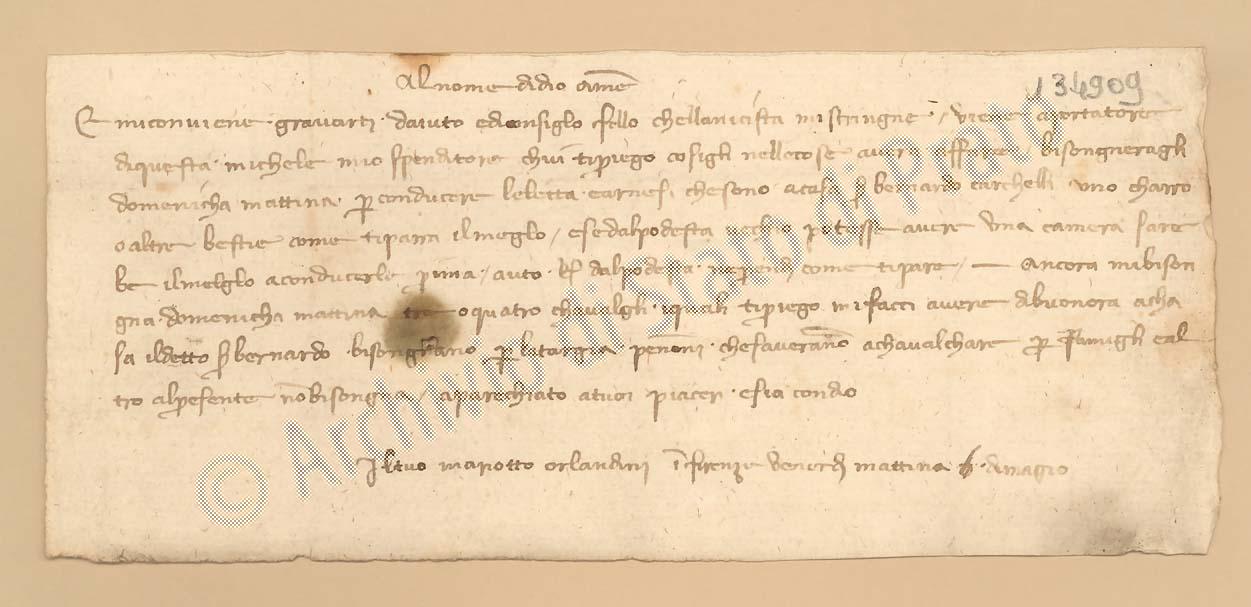 Al nome di dio ame
134909
E mi conviene gravarti d aiuto e di consiglo sello chella nicista mi stringne / viene aportatore
di questa michele mio spenditore chui ti priego cosigli nelle cose avera affare bisongneragli
domenicha mattina p conducere le letta e arnesi che sono a casa s bernardo carchelli uno charro
o altre bestie come ti parra il meglo / e se dal podesta vechio potesse avere una camera sare
be il melglo a conducerle prima / auto dal podesta come ti pare / ancora mi bison
gna domenicha mattina tre o quatro chavalgli i quali ti priego mi facci avere a buonora a cha
sa il detto s bernardo bisongnano p che saverano a chavalchare p famigli e al
tro al presente no bisongna / aparechiato a tuoi piacer e sia con dio
Il tuo mariotto orlandini i firenze venerdi mattina 6 di magio
© Archivio di Stato di Prato